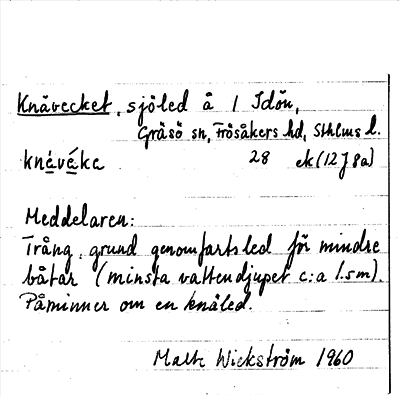 Knävecket, sjöled å / Idön,
Gräsö sn, Frösåkers hd, Sthlms l.
knävéke 28 ek (12J8a)
Meddelaren:
Trång, grund genomfartsled för mindre
båtar (minsta vattendjupet c:a 1.5m).
Påminner om en knäled.
Malte Wickström 1960